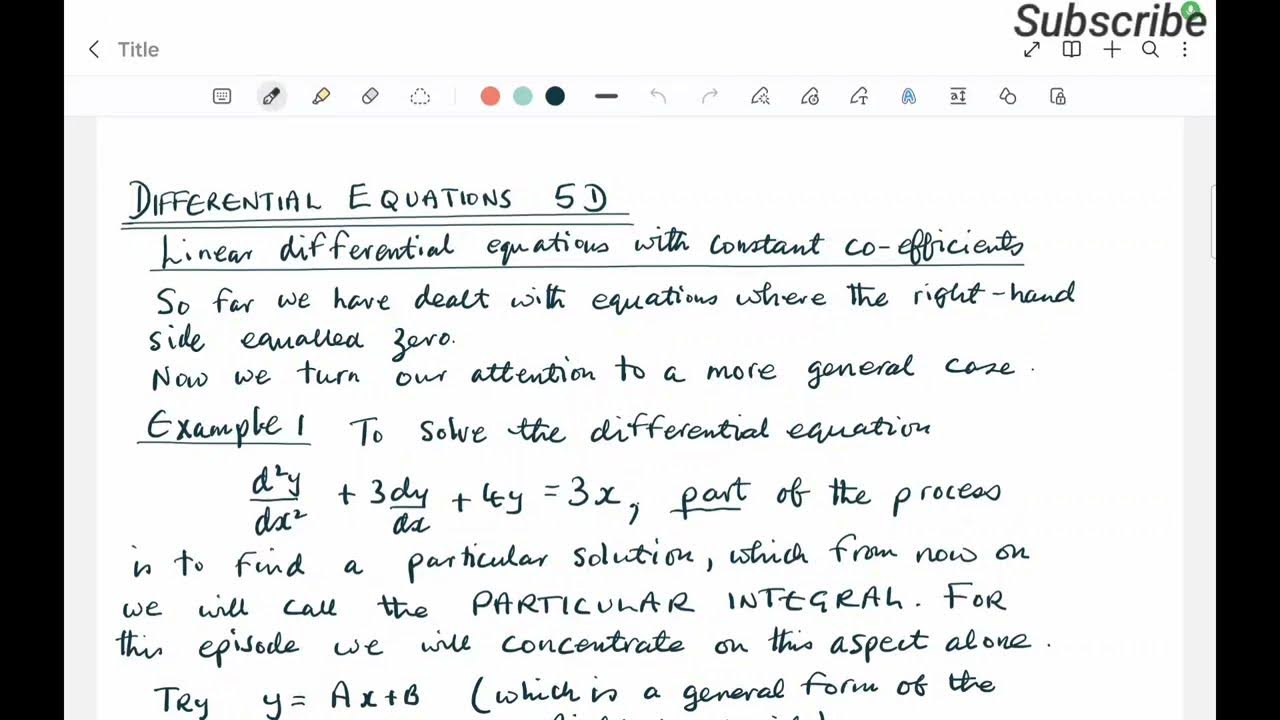 Subscribe
Title
DIFFERENTIAL EQUATIONS 5D
Linear differential equations with constant co-efficients
So far we have dealt with equations where the right-hand
side equalled zero.
Now we turn our attention to a more general case.
Example 1 To solve the differential equation
d²y/dx² + 3dy/dx + 4y = 3x, part of the process
is to find a particular solution, which from now on
we will call the PARTICULAR INTEGRAL. FOR
this episode we will concentrate on this aspect alone.
TRY y = Ax+B (which is a general form of the